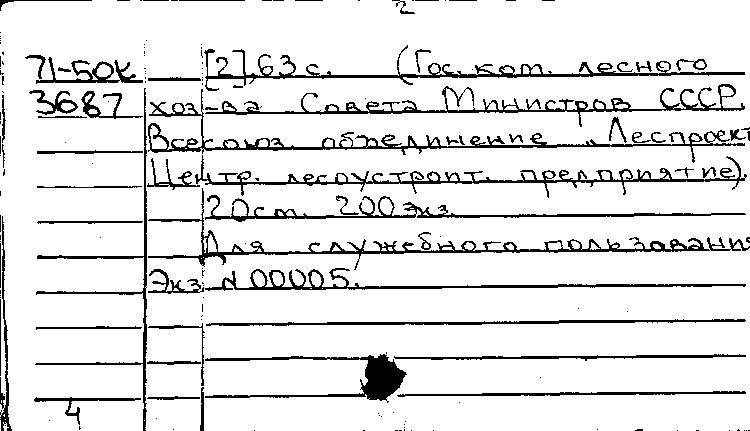 2
71-50к [2], 63 с. (Гос. ком. лесного
3687 хоз-ва Совета Министров СССР.
Всесоюз. объединение „Леспроект
Центр. лесоустроит. предприятие).
20 cm. 200 экз.
Для служебного пользования
Экз N 00005.
4